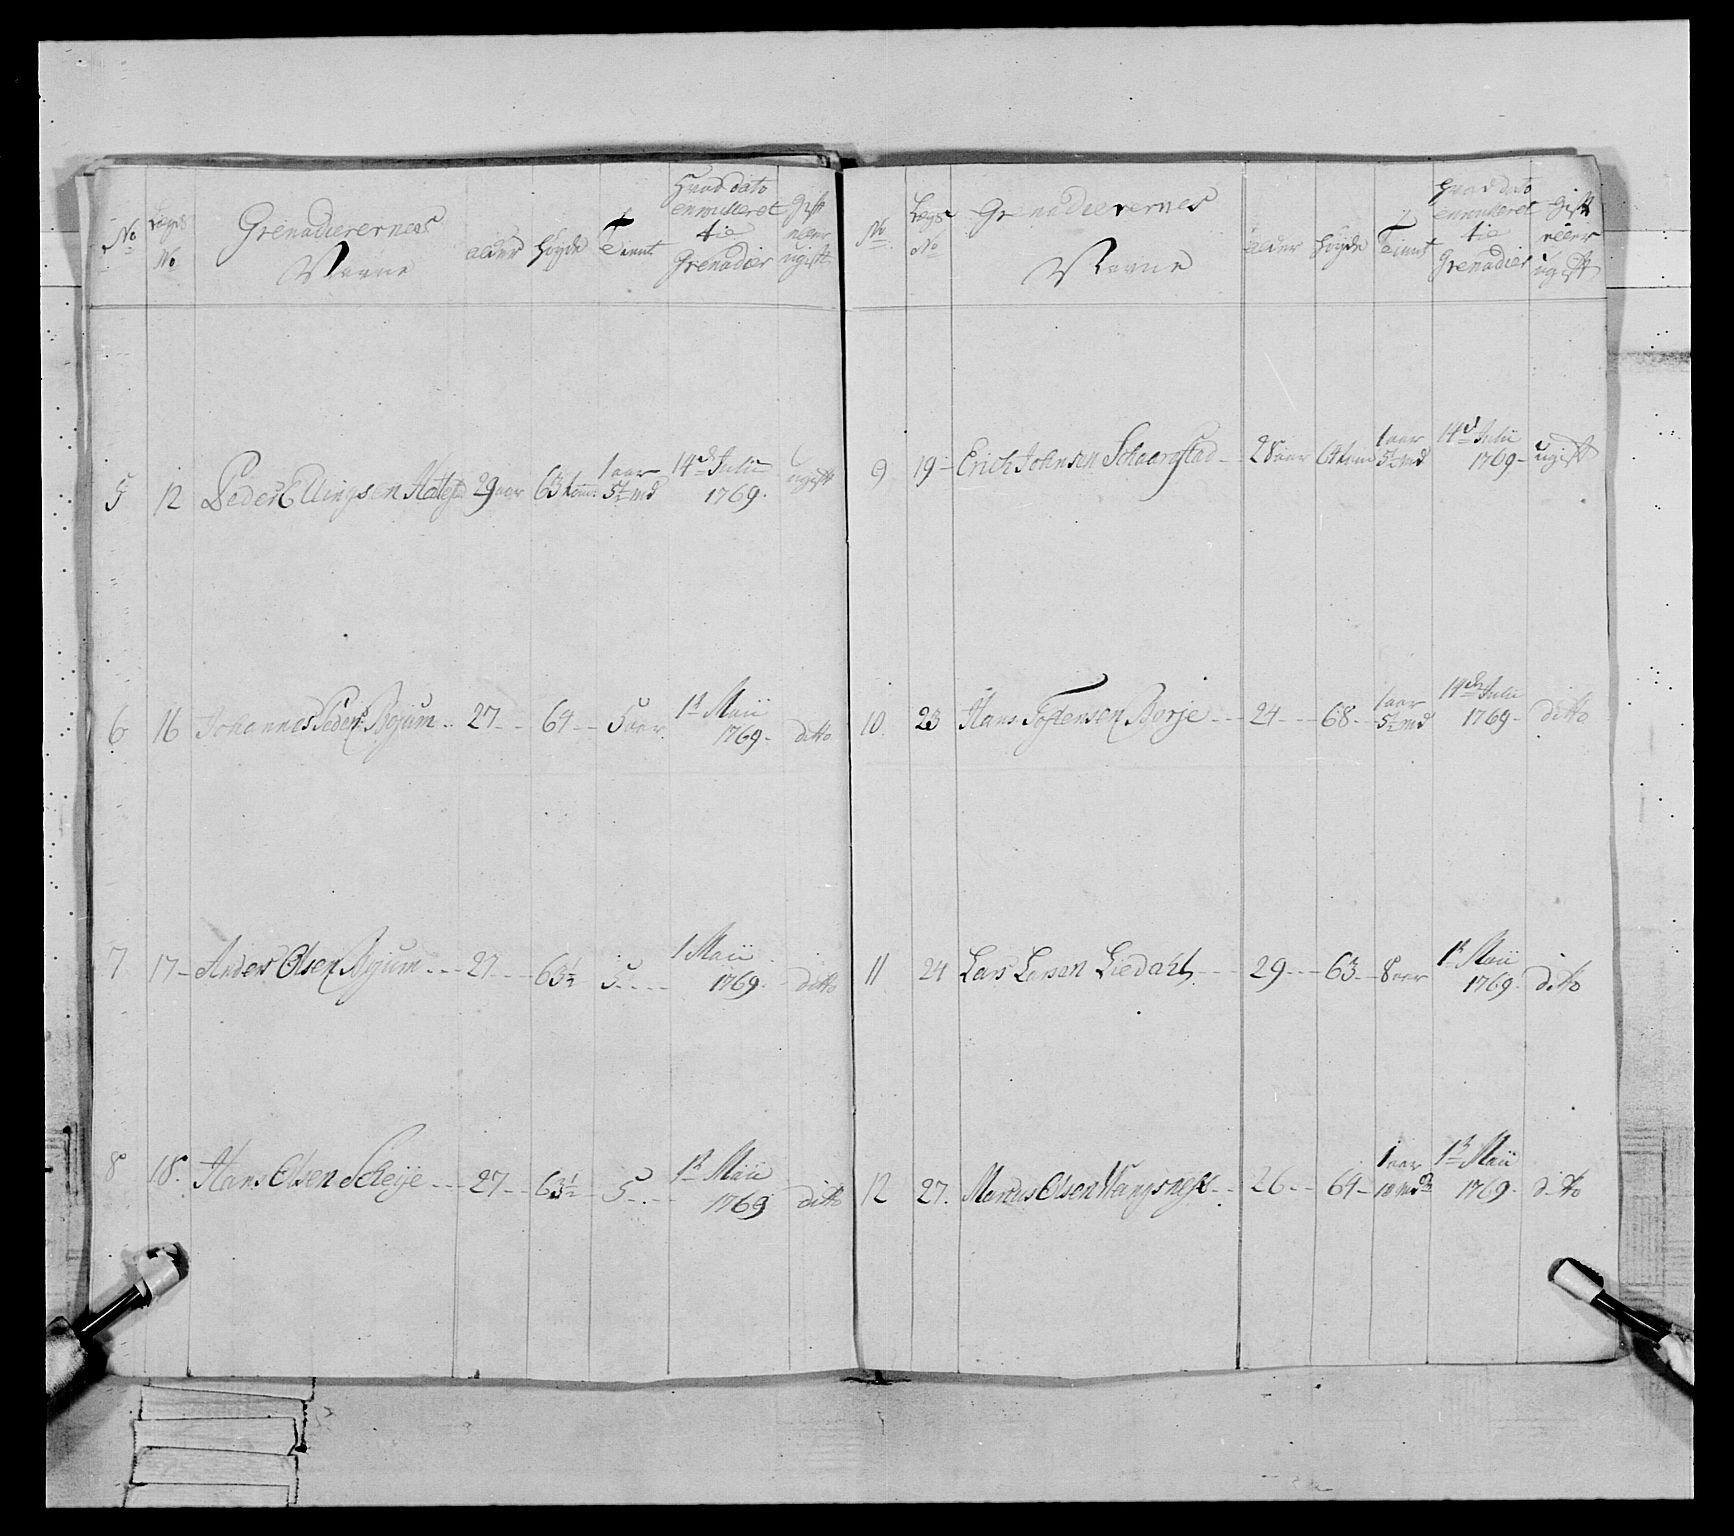 No Lægs No Grenadierernes Navne alder høyde Tient Hvad dato enrulleret til Grenadier gift eller ugift
5 12 Peder Ellingsen 29 aar 63 tom: 1 aar 5½ md 14d Julii 1769. ugift
6 16 Johannes Peders: Bojum .. 27 -- 64 -- 5 aar 1t Maii 1769 - ditto
7 17 - Anders Olsen Bojum --- 27 --- 63½ 5 ---- 1 Maii 1769. ditto
8 18. Hans Olsen Scheije --- 27 -- 63½ - 5 ---- 1t Maii 1769 ditto
No Lægs No Grenadierernes Navne alder høyde Tient hvad dato enrulleret til Grenadier gift eller ugift
9 19 - Erich Johnsen Schaargstad - 28 aar 64 tom 1 aar 5½ md 14d Julii 1769 - ugift
10. 23 Hans Tostensen Borje --- 24 --- 68 -- 1 aar 5½ md 14de Julii 1769 - ditto
11 24 Lars Larsen Liedahl ---- 29 --- 63 -- 8 aar 1t Maii 1769. ditto
12 27. Marcus Olsen Wangsnes -- 26 -- 64 - 1 aar 10 mdr 1t Maii 1769. ditto